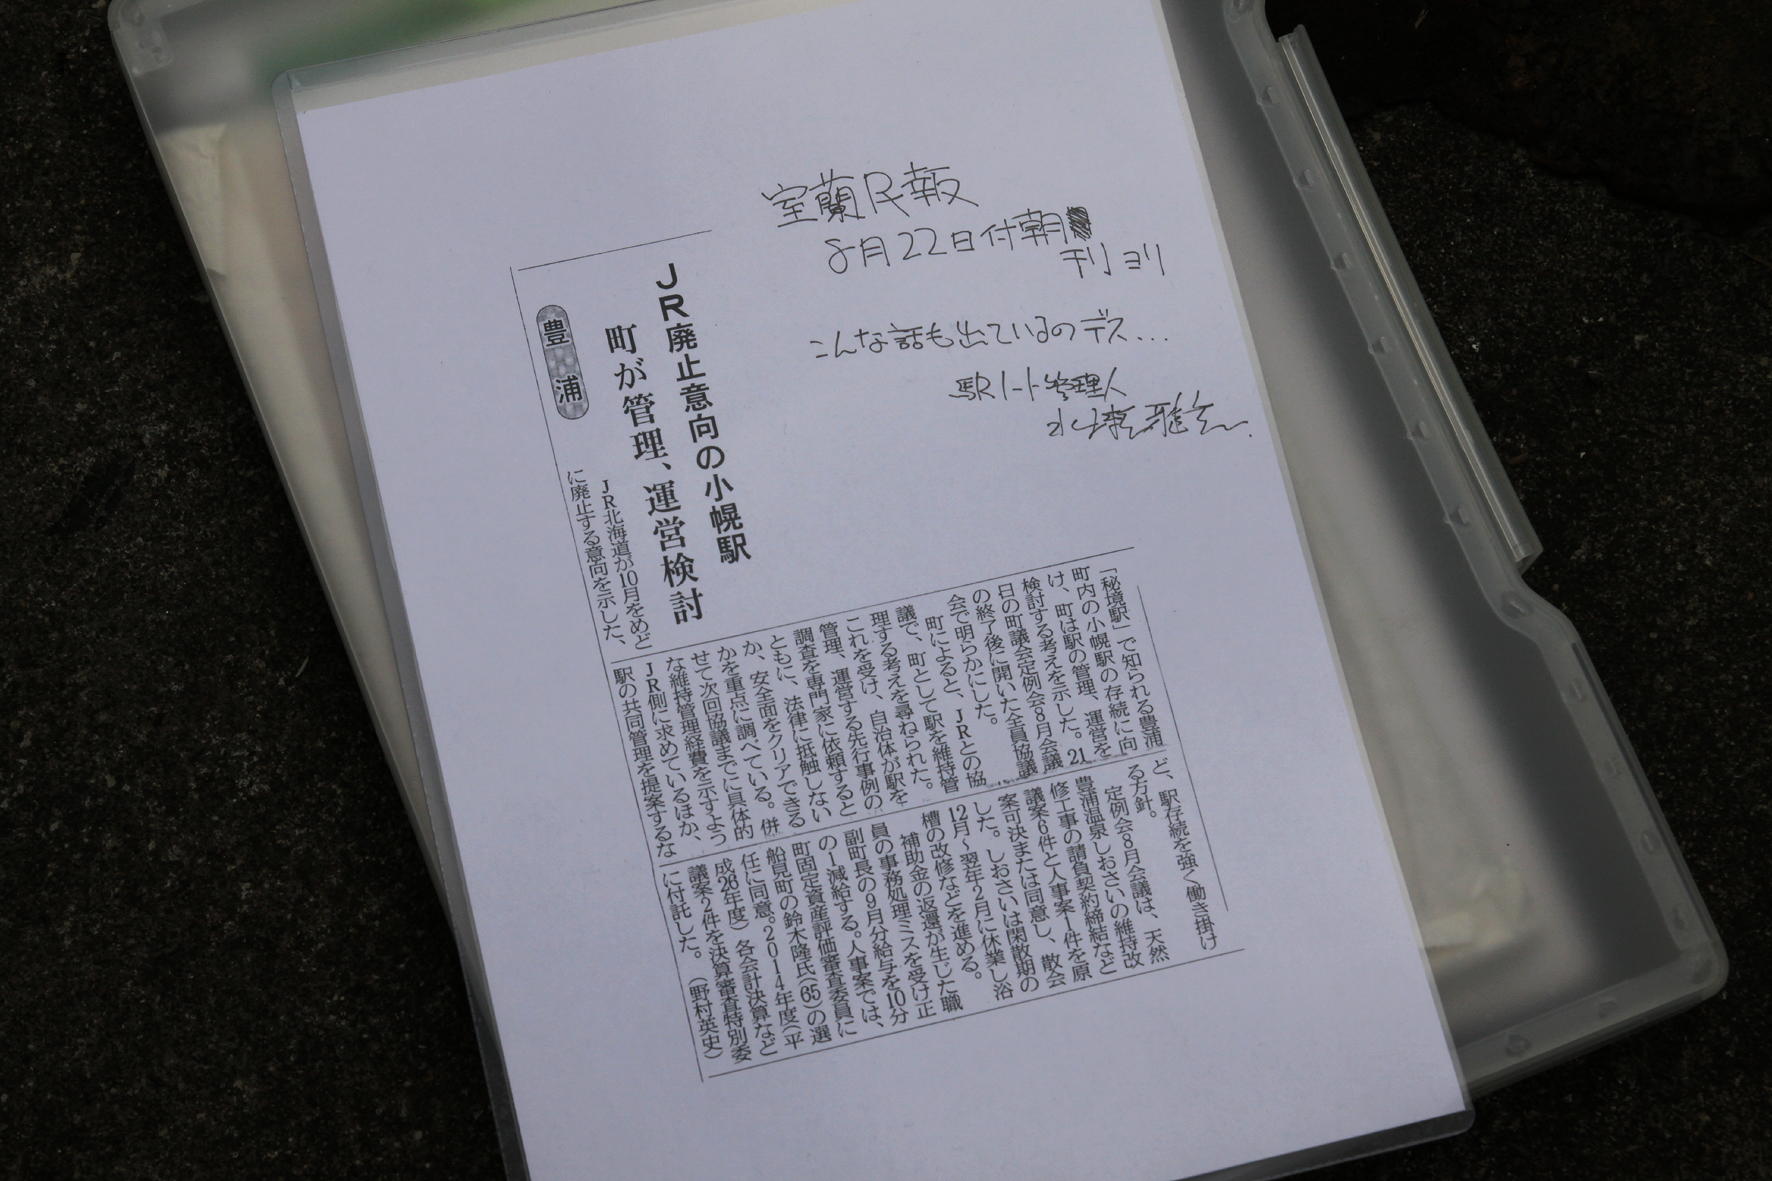 室蘭民報
8月22日付朝
刊ヨリ
こんな話も出ているのデス...
駅ノート管理人
JR廃止意向の小幌駅
町が管理、運営検討
豊浦
JR北海道が10月をめど
に廃止する意向を示した、
「秘境駅」で知られる豊浦
町内の小幌駅の存続に向
け、町は駅の管理、運営を
検討する考えを示した。21
日の町議会定例会8月会議
の終了後に開いた全員協議
会で明らかにした。
町によると、JRとの協
議で、町として駅を維持管
理する考えを尋ねられた。
これを受け、自治体が駅を
管理、運営する先行事例の
調査を専門家に依頼すると
ともに、法律に抵触しない
か、安全面をクリアできる
かを重点に調べている。併
せて次回協議までに具体的
な維持管理経費を示すよう
JR側に求めているほか、
駅の共同管理を提案するな
ど、駅存続を強く働き掛け
る方針。
定例会8月会議は、天然
豊浦温泉しおさいの維持改
修工事の請負契約締結など
議案6件と人事案1件を原
案可決または同意し、散会
した。しおさいは閑散期の
12月〜翌年2月に休業し浴
槽の改修などを進める。
補助金の返還が生じた職
員の事務処理ミスを受け正
副町長の9月分給与を10分
の1減給する。人事案では、
町固定資産評価審査委員に
船見町の鈴木隆氏(65)の選
任に同意。2014年度(平
成26年度)各会計決算など
議案2件を決算審査特別委
に付託した。(野村英史)